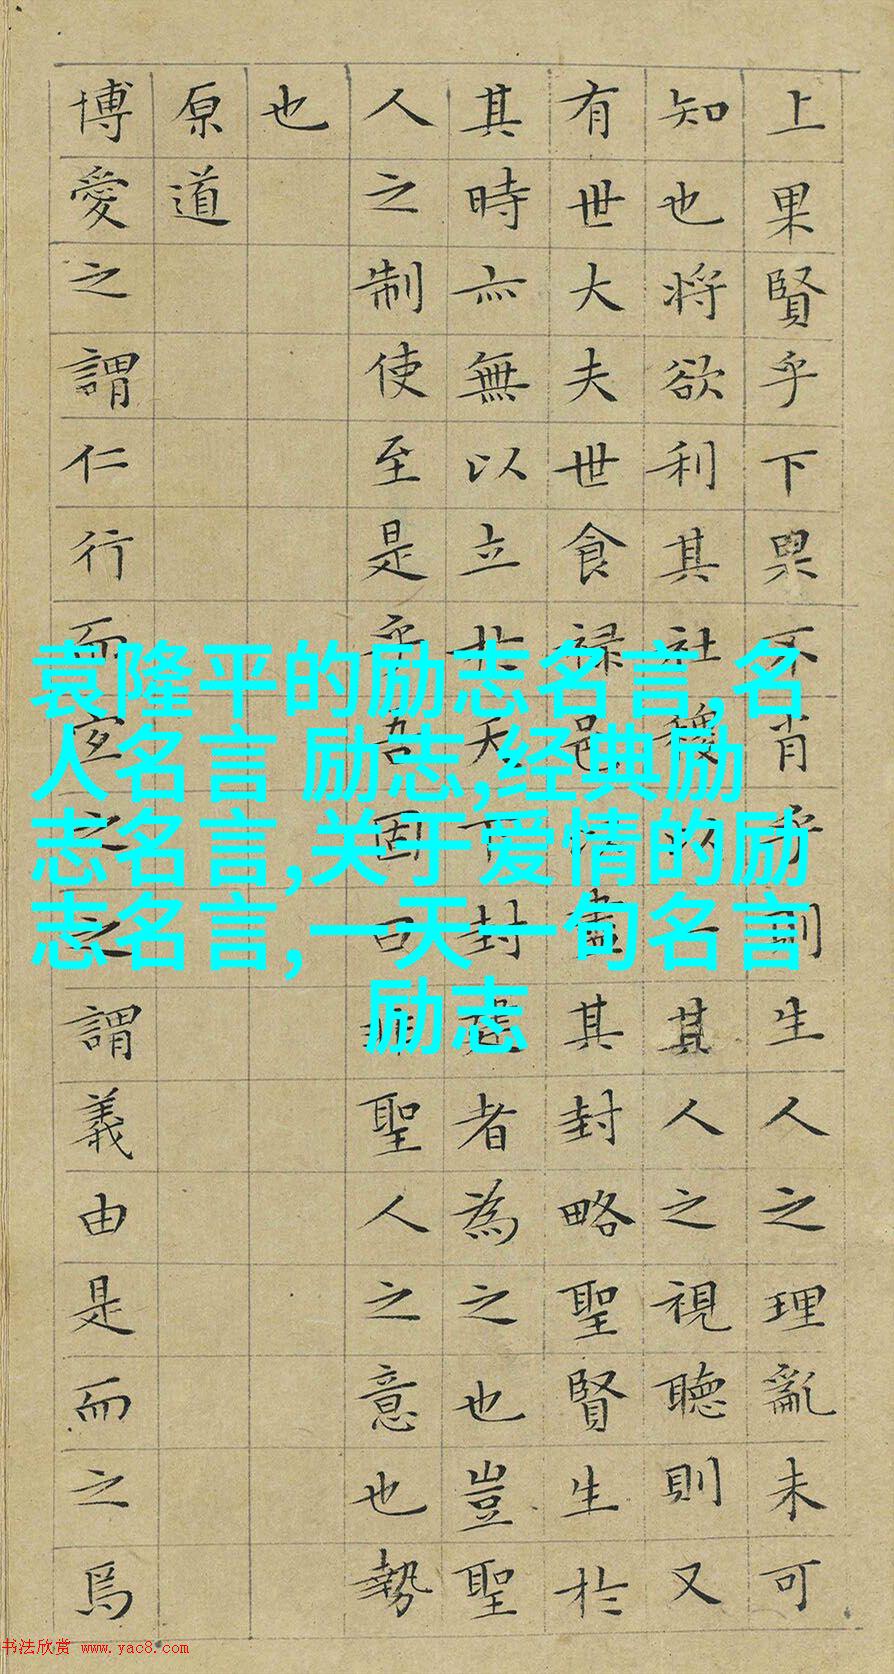 上果賢乎下果不肖乎則生人之理亂未可
知也将欲利其社稷以一其人之視聽則又
有世大夫世食禄邑以盡其封略聖賢生於
其時亦無以立於天下封建者為之也豈聖
人之制使至是乎吾固曰非聖人之意也勢
也
原道
博愛之謂仁行而宜之之謂義由是而之焉
袁隆平的励志名言,名
人名言 励志,经典励
志名言,关于爱情的励
志名言,一天一句名言
励志
书法欣赏 www.yac8.com